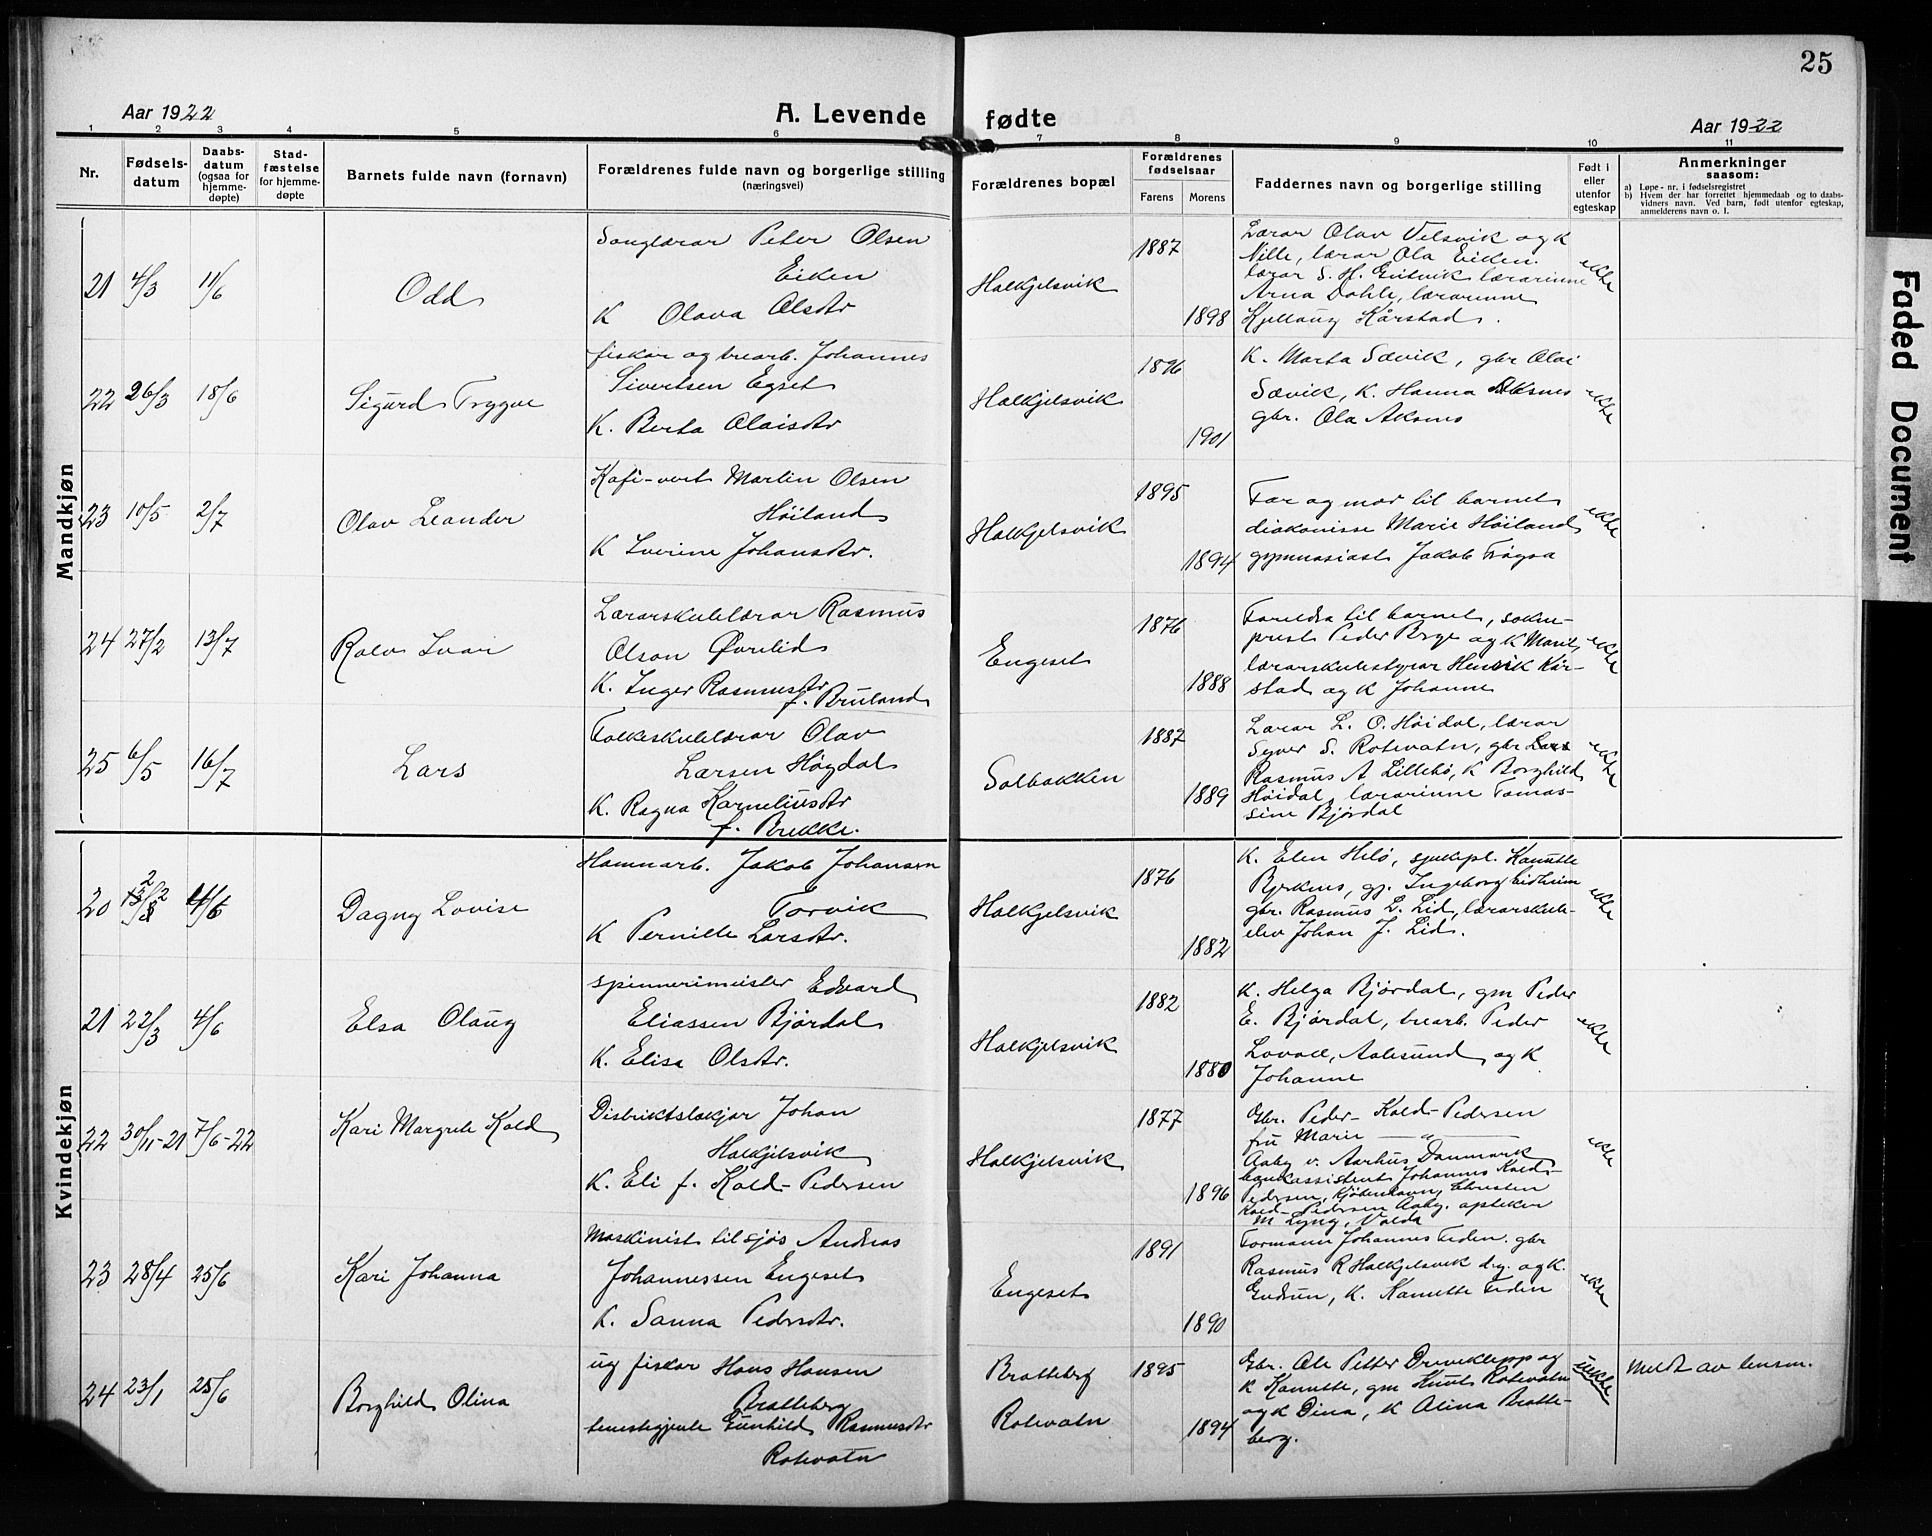 25
Aar 1922
A. Levende fødte
Aar 1922
1 2 3 4 5 6 7 8 9 10 11
Nr.
Fødsels-
datum
Daabs-
datum
(ogsaa for
hjemme-
døpte)
Stad-
fæstelse
for hjemme-
døpte
Barnets fulde navn (fornavn)
Forældrenes fulde navn og borgerlige stilling
(næringsvei)
Forældrenes bopæl
Forældrenes
fødselsaar
Farens Morens
Faddernes navn og borgerlige stilling
Født i
eller
utenfor
egteskap
Anmerkninger
saasom:
a) Løpe-nr. i fødselsregistret
b) Hvem der har forrettet hjemmedaab og to daabs-
vidners navn. Ved barn, født utenfor egteskap,
anmelderens navn o. l.
Mandkjøn
21 4/3 11/6
Odd
Songlærar Peter Olsen
Eiken
K Olava Olsdtr
Halkjelsvik
1887
1898
Lærar Olav Velsvik og K
Nille, lærar Ola Eiken.
lærar S. H. lærarinne
Arna Dahle, lærarinne
Kjellaug Kårstad.
ekte
22 26/3 18/6
Sigurd Trygve
fiskar og trearb. Johannes
Sivertsen Egset
K. Berta Olaisdtr
Halkjelsvik
1896
1901
K. Marta Sævik, gbr Olai
Sævik, K. Hanna Aksnes
gbr. Ola Aksnes
ekte
23 10/5 2/7
Olav Leander
Kafi-vert Martin Olsen
Høiland
K Iverine Johansdtr.
Halkjelsvik
1895
1894
Far og mor til barnet
diakonisse Marie Høiland
gymnasiast Jakob
ekte
24 27/2 13/7
Rolv Ivar
Lærarskulelærar Rasmus
Olson Øvrelid
K. Inger Rasmusdtr
f. Bruland
Engeset
1876
1888
Foreldra til barnet, sokne-
prest Peder Brge og K Marit,
lærarskulestyrar Henrik Kår-
stad og K Johanne
ekte
25 6/5 16/7
Lars
Folkeskulelærar Olav
Larsen Høydal
K. Ragna Karneliusdtr
f. Brekke.
Solbakken
1887
1889
Lærar L. O. Høidal, lærar
Syver S. Rotevatn, gbr Lars
Rasmus A Lillebø, K Borghild
Høidal, lærarinne Tomas-
sine Bjørdal
ekte
Kvindekjøn
20 4/6
Dagny Lovise
Hamnarb. Jakob Johansen
Torvik
K Pernille Larsdtr.
Halkjelsvik
1876
1882
K. Elen Helø, sjukepl. Kanutte
Bjerknes, gj. Ingeborg Eidheim
gbr. Rasmus L. Lid, lærarskule-
elev Johan J. Lid.
ekte
21 22/3 4/6
Elsa Olaug
spinnerimeister Edvard
Eliassen Bjørdal
K. Elisa Olsdtr.
Halkjelsvik
1882
1880
K. Helga Bjørdal, gm Peder
E. Bjørdal, trearb. Peder
Lovoll, Aalesund, og K
Johanne
ekte
22 30/11-21 7/6-22
Kari Margrete Kold
Distriktslækjar Johan
Halkjelsvik
K. Eli f. Kold-Pedersen
Halkjelsvik
1877
1896
Gbr. Peder Kold-Pedersen
fru Marie — " —
Aaby v. Aarhus Danmark
bankassistent Johannes Kold-
Pedersen, Kjøbenhavn, Christen
Kold-Pedersen Aaby. apoteker
M Lyng, Volda
ekte
23 28/4 25/6
Kari Johanna
Maskinist til sjøs Andreas
Johannessen Engeset
K. Sanna Pedersdtr.
Engeset
1891
1890
Formann Johannes Feden. gbr
Rasmus R Halkjelsvik d.y. og K.
Gudrun, K. Kanutte Feden
ekte
24 23/1 25/6
Borghild Olina
ug fiskar Hans Hansen
Bratteberg
tenestegjente Gunhild Rasmusdtr
Rotevatn
Bratteberg
Rotevatn
1895
1894
Gbr. Ole Petter Driveklepp og
K Kanutte, gm Knut Rotevatn
og K Dina, K Olina Bratte-
berg.
uekte
Meldt av lensm.
Faded Document